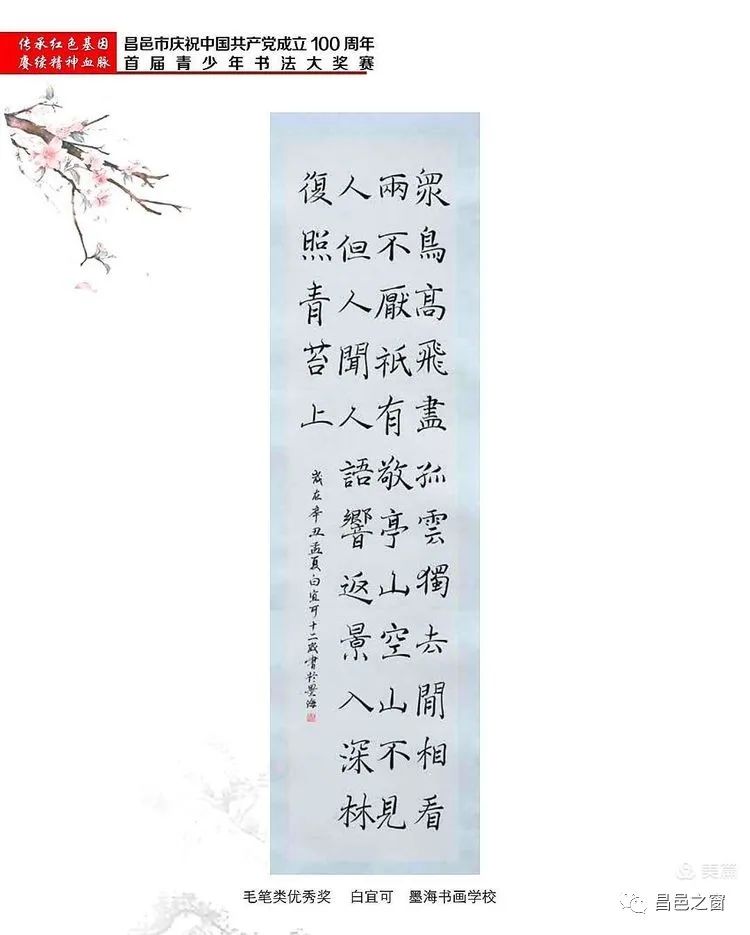 传承红色基因
赓续精神血脉
昌邑市庆祝中国共产党成立100周年
首届青少年书法大奖赛
眾鳥高飛盡孤雲獨去閒相看
兩不厭祇有敬亭山空山不見
人但人聞人語響返景入深林
復照青苔上
歲在辛丑孟夏白宜可十二歲書於墨海
毛笔类优秀奖 白宜可 墨海书画学校
美篇
昌邑之窗